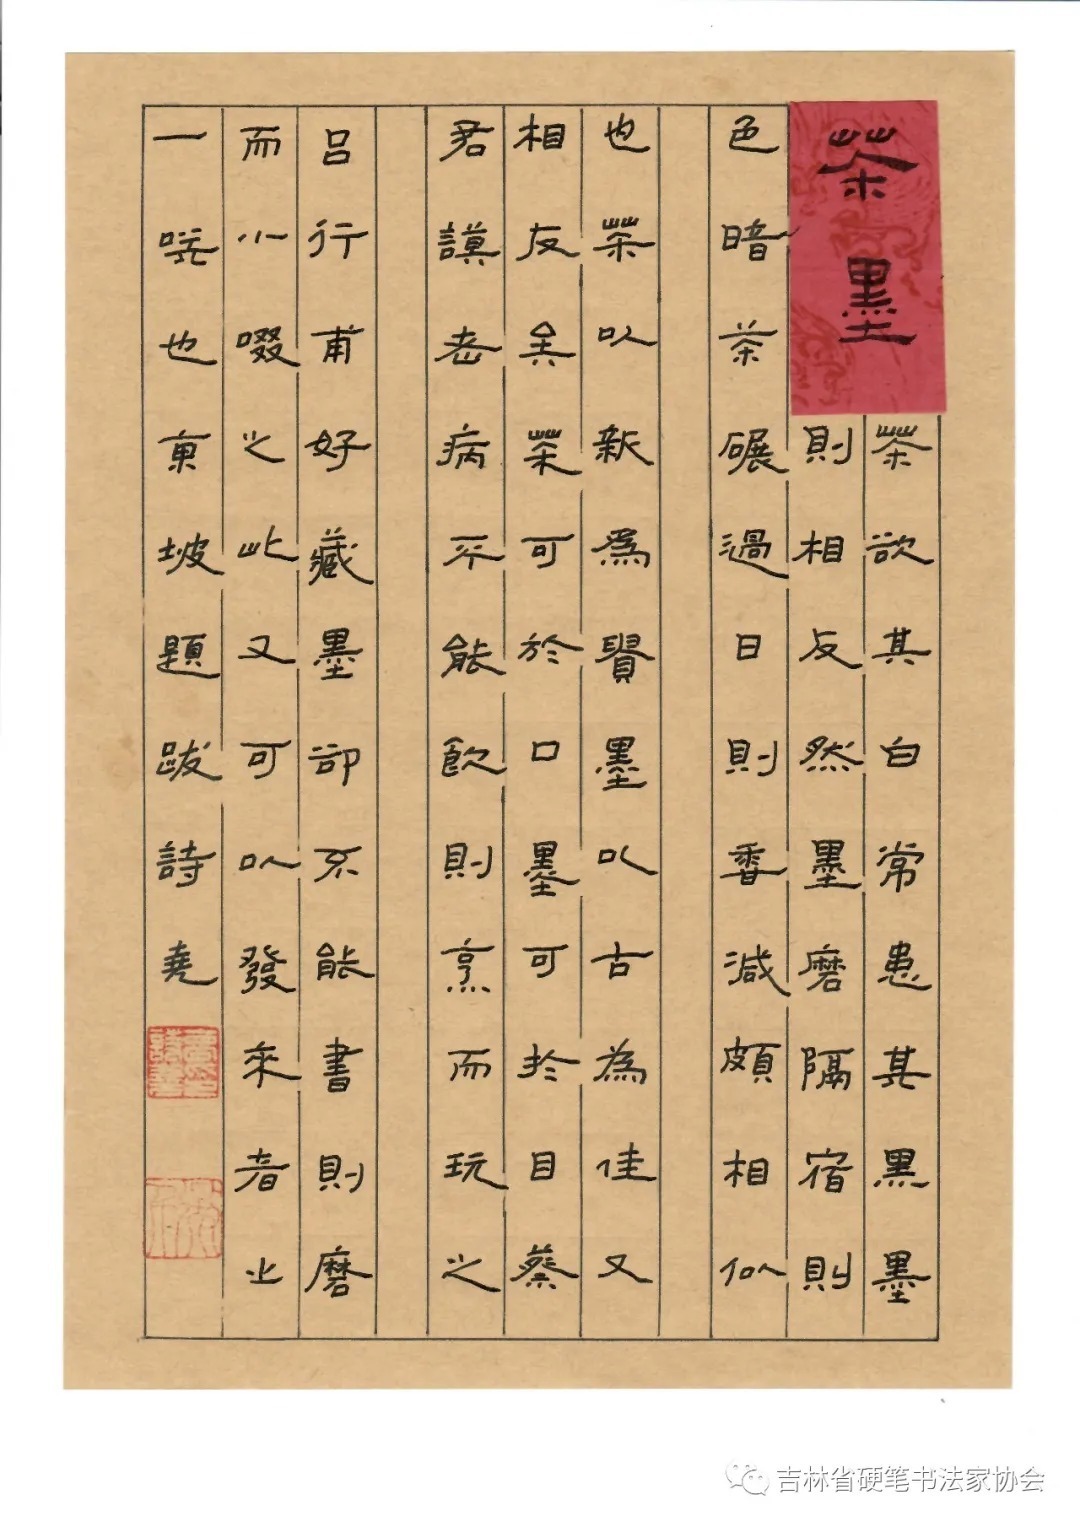 茶墨
茶欲其白常患其黑墨
則相反然墨磨隔宿則
色暗茶碾過日則香減頗相似
也茶以新爲貴墨以古為佳又
相反矣茶可於口墨可於目蔡
君謨老病不能飲則烹而玩之
呂行甫好藏墨卻不能書則磨
而小啜之此又可以發來者之
一咲也東坡題跋詩堯
吉林省硬笔书法家协会